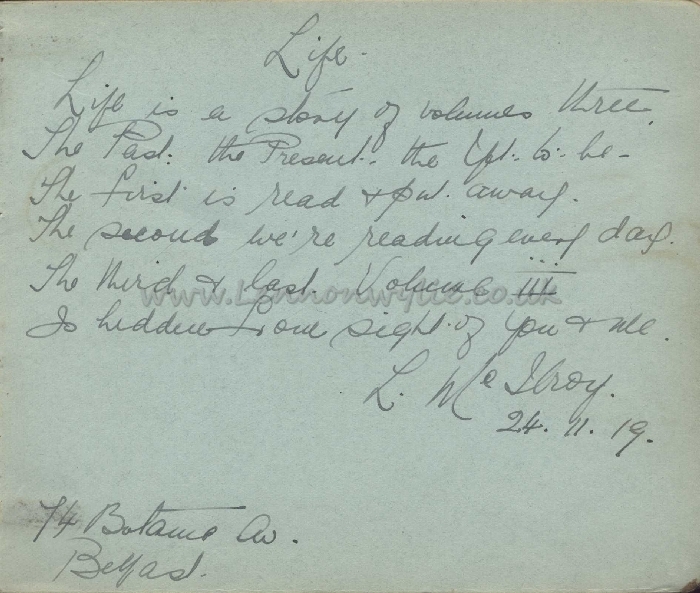 Life.
Life is a story of volumes three.
The Past. the Present. the Yet. to. be -
The first is read & put. away.
The second we're reading every day.
The third & last. Volume III
Is hidden from sight of you & me.
www.Lennonwylie.co.uk
L. McIlroy.
24. 11. 19.
74 Botanic Av.
Belfast.